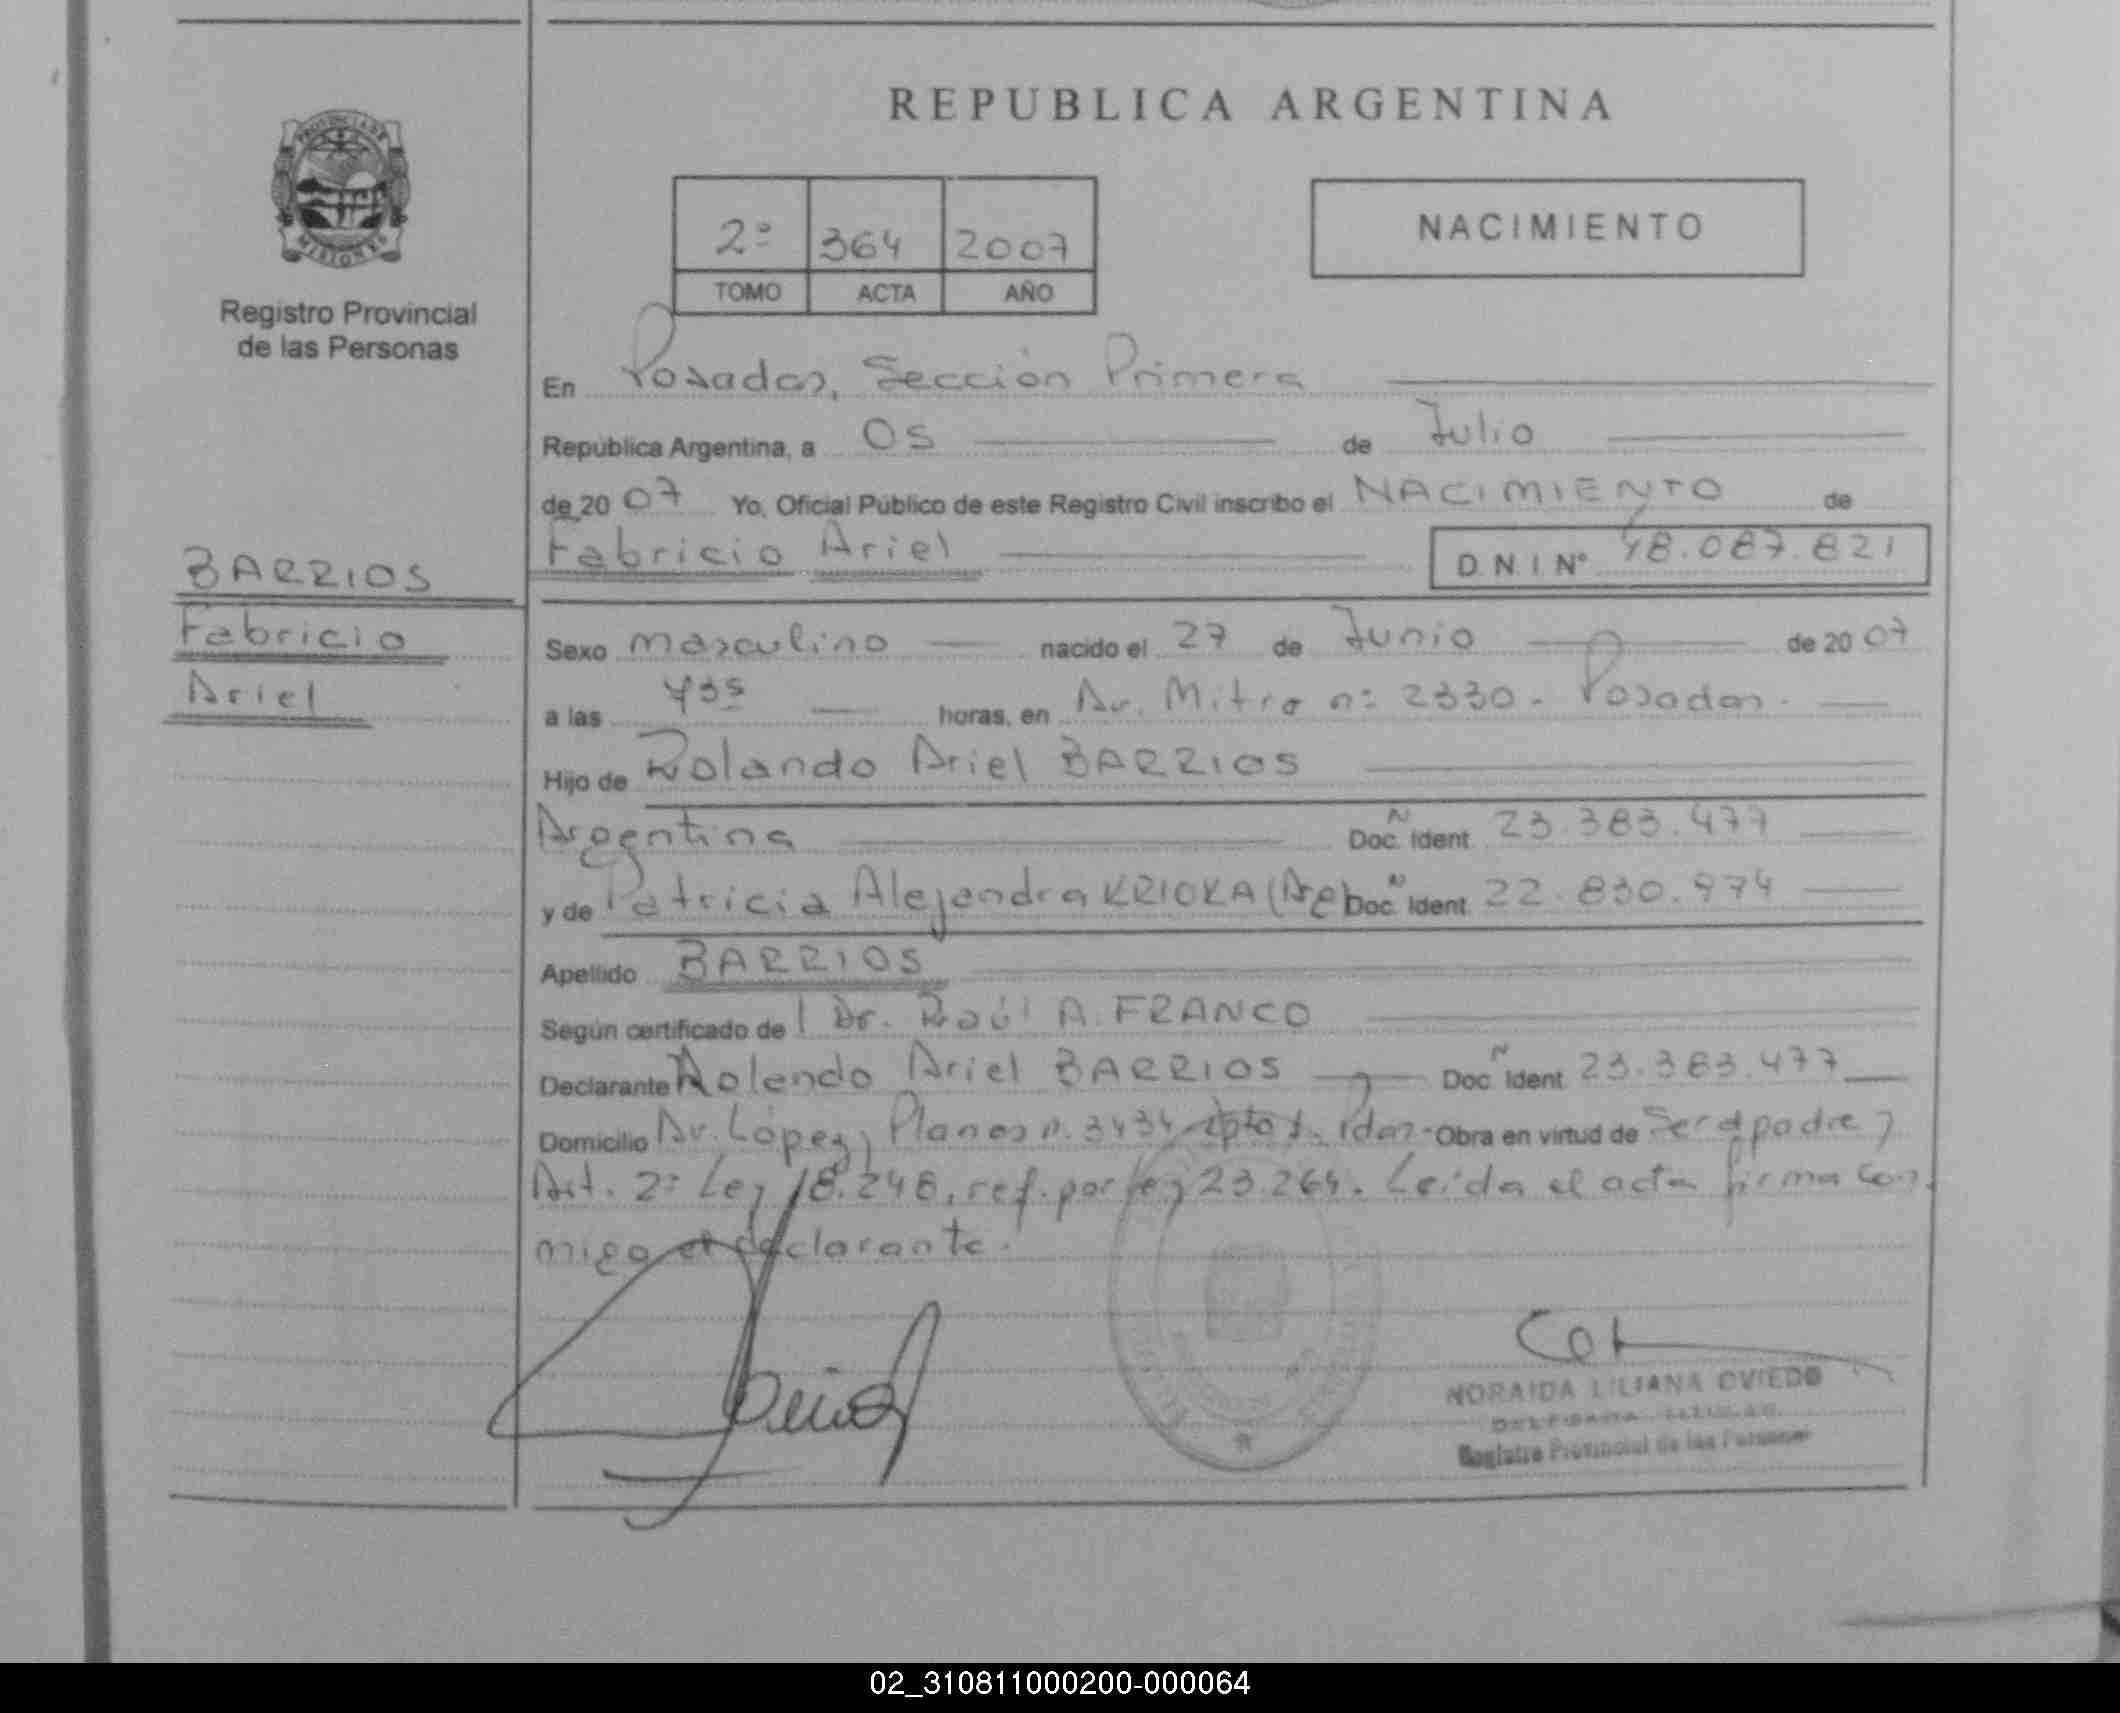 REPUBLICA ARGENTINA
PROVINCIA DE
MISIONES
Registro Provincial
de las Personas
2º 364 2007
TOMO ACTA AÑO
NACIMIENTO
En Posadas, Sección Primera
República Argentina, a 05 de Julio
de 2007 Yo, Oficial Público de este Registro Civil inscribo el NACIMIENTO de
Fabricio Ariel D.N.I. Nº 48.087.821
BARRIOS
Fabricio
Ariel
Sexo masculino nacido el 27 de Junio de 2007
a las horas, en Av. Mitre nº 2330 - Posadas.
Hijo de Rolando Ariel BARRIOS
Argentina Doc. Ident. 23.383.477
y de Patricia Alejandra KRIOKA Doc. Ident. 22.830.974
Apellido BARRIOS
Según certificado de Dr. Raúl A. FRANCO
Declarante Rolando Ariel BARRIOS Doc. Ident. 23.383.477
Domicilio Av. López y Planes n. 3434 Obra en virtud de Ser padre y
Art. 2º Ley 18.248, ref. por ley 23.264. Leída el acta firma con
migo el declarante.
NORAIDA LILIANA OVIEDO
Registro Provincial de las Personas
02_310811000200-000064